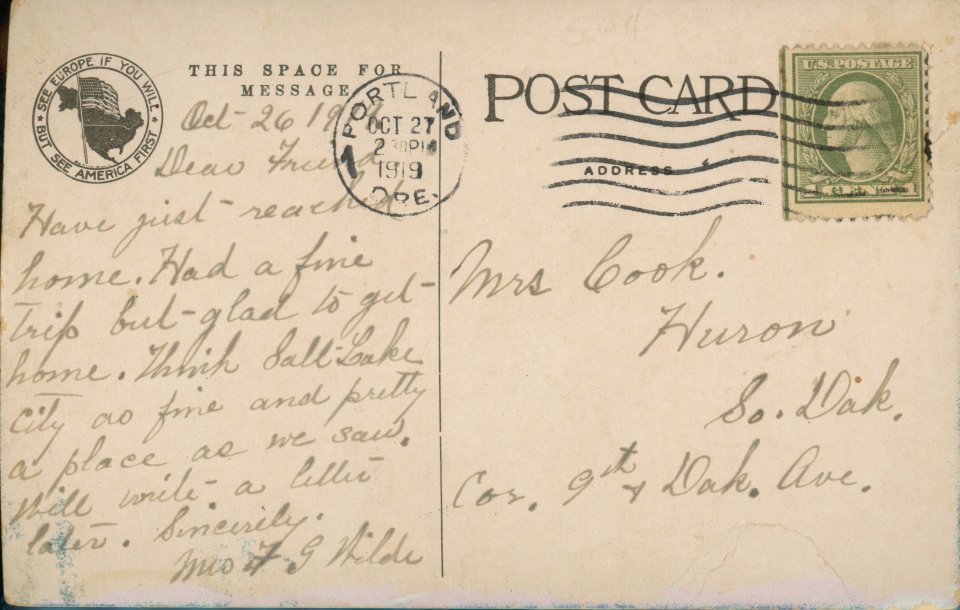 SEE EUROPE IF YOU WILL
BUT SEE AMERICA FIRST
THIS SPACE FOR
MESSAGE
Oct-26 19
Dear Friend
Have just reached
home. Had a fine
trip but glad to get
home. Think Salt Lake
City as fine and pretty
a place as we saw.
Will write a letter
later. Sincerely.
Mrs F G Wilde
PORTLAND
1
OCT 27
2 30 PM
1919
ORE.
POST CARD
ADDRESS
U.S. POSTAGE
Mrs Cook.
Huron
So. Dak.
Cor. 9th & Dak. Ave.